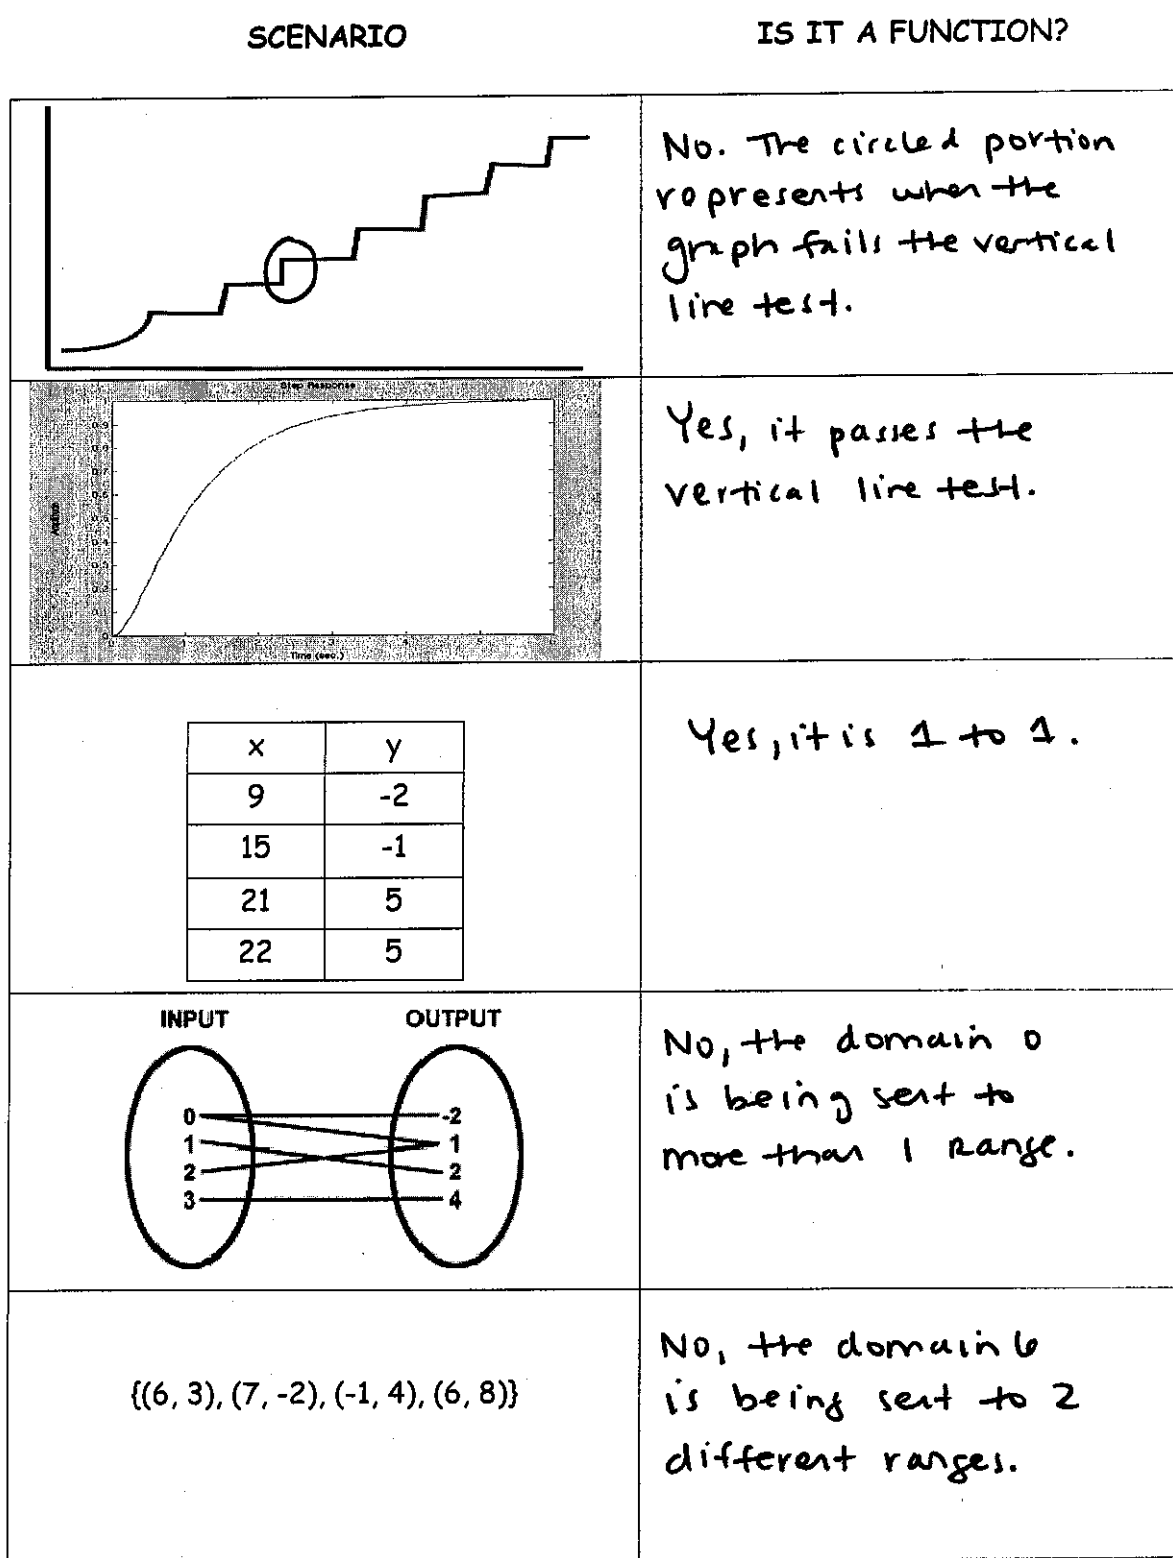 SCENARIO
IS IT A FUNCTION?
No. The circled portion
represents when the
graph fails the vertical
line test.
Step Response
0.9
0.7
0.6
0.5
0.4
0.3
0.2
0.1
0
0
1
2
3
4
5
6
Time (sec.)
Yes, it passes the
vertical line test.
x y
9 -2
15 -1
21 5
22 5
Yes, it is 1 to 1.
INPUT OUTPUT
0 -2
1 1
2 2
3 4
No, the domain 0
is being sent to
more than 1 Range.
{(6, 3), (7, -2), (-1, 4), (6, 8)}
No, the domain 6
is being sent to 2
different ranges.